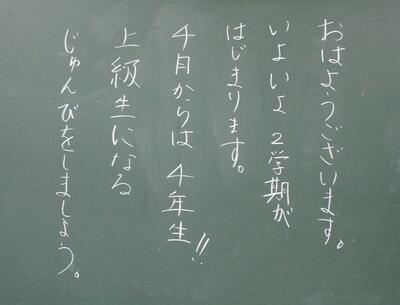 おはようございます。
いよいよ2学期が
はじまります。
4月からは4年生!!
上級生になる
じゅんびをしましょう。